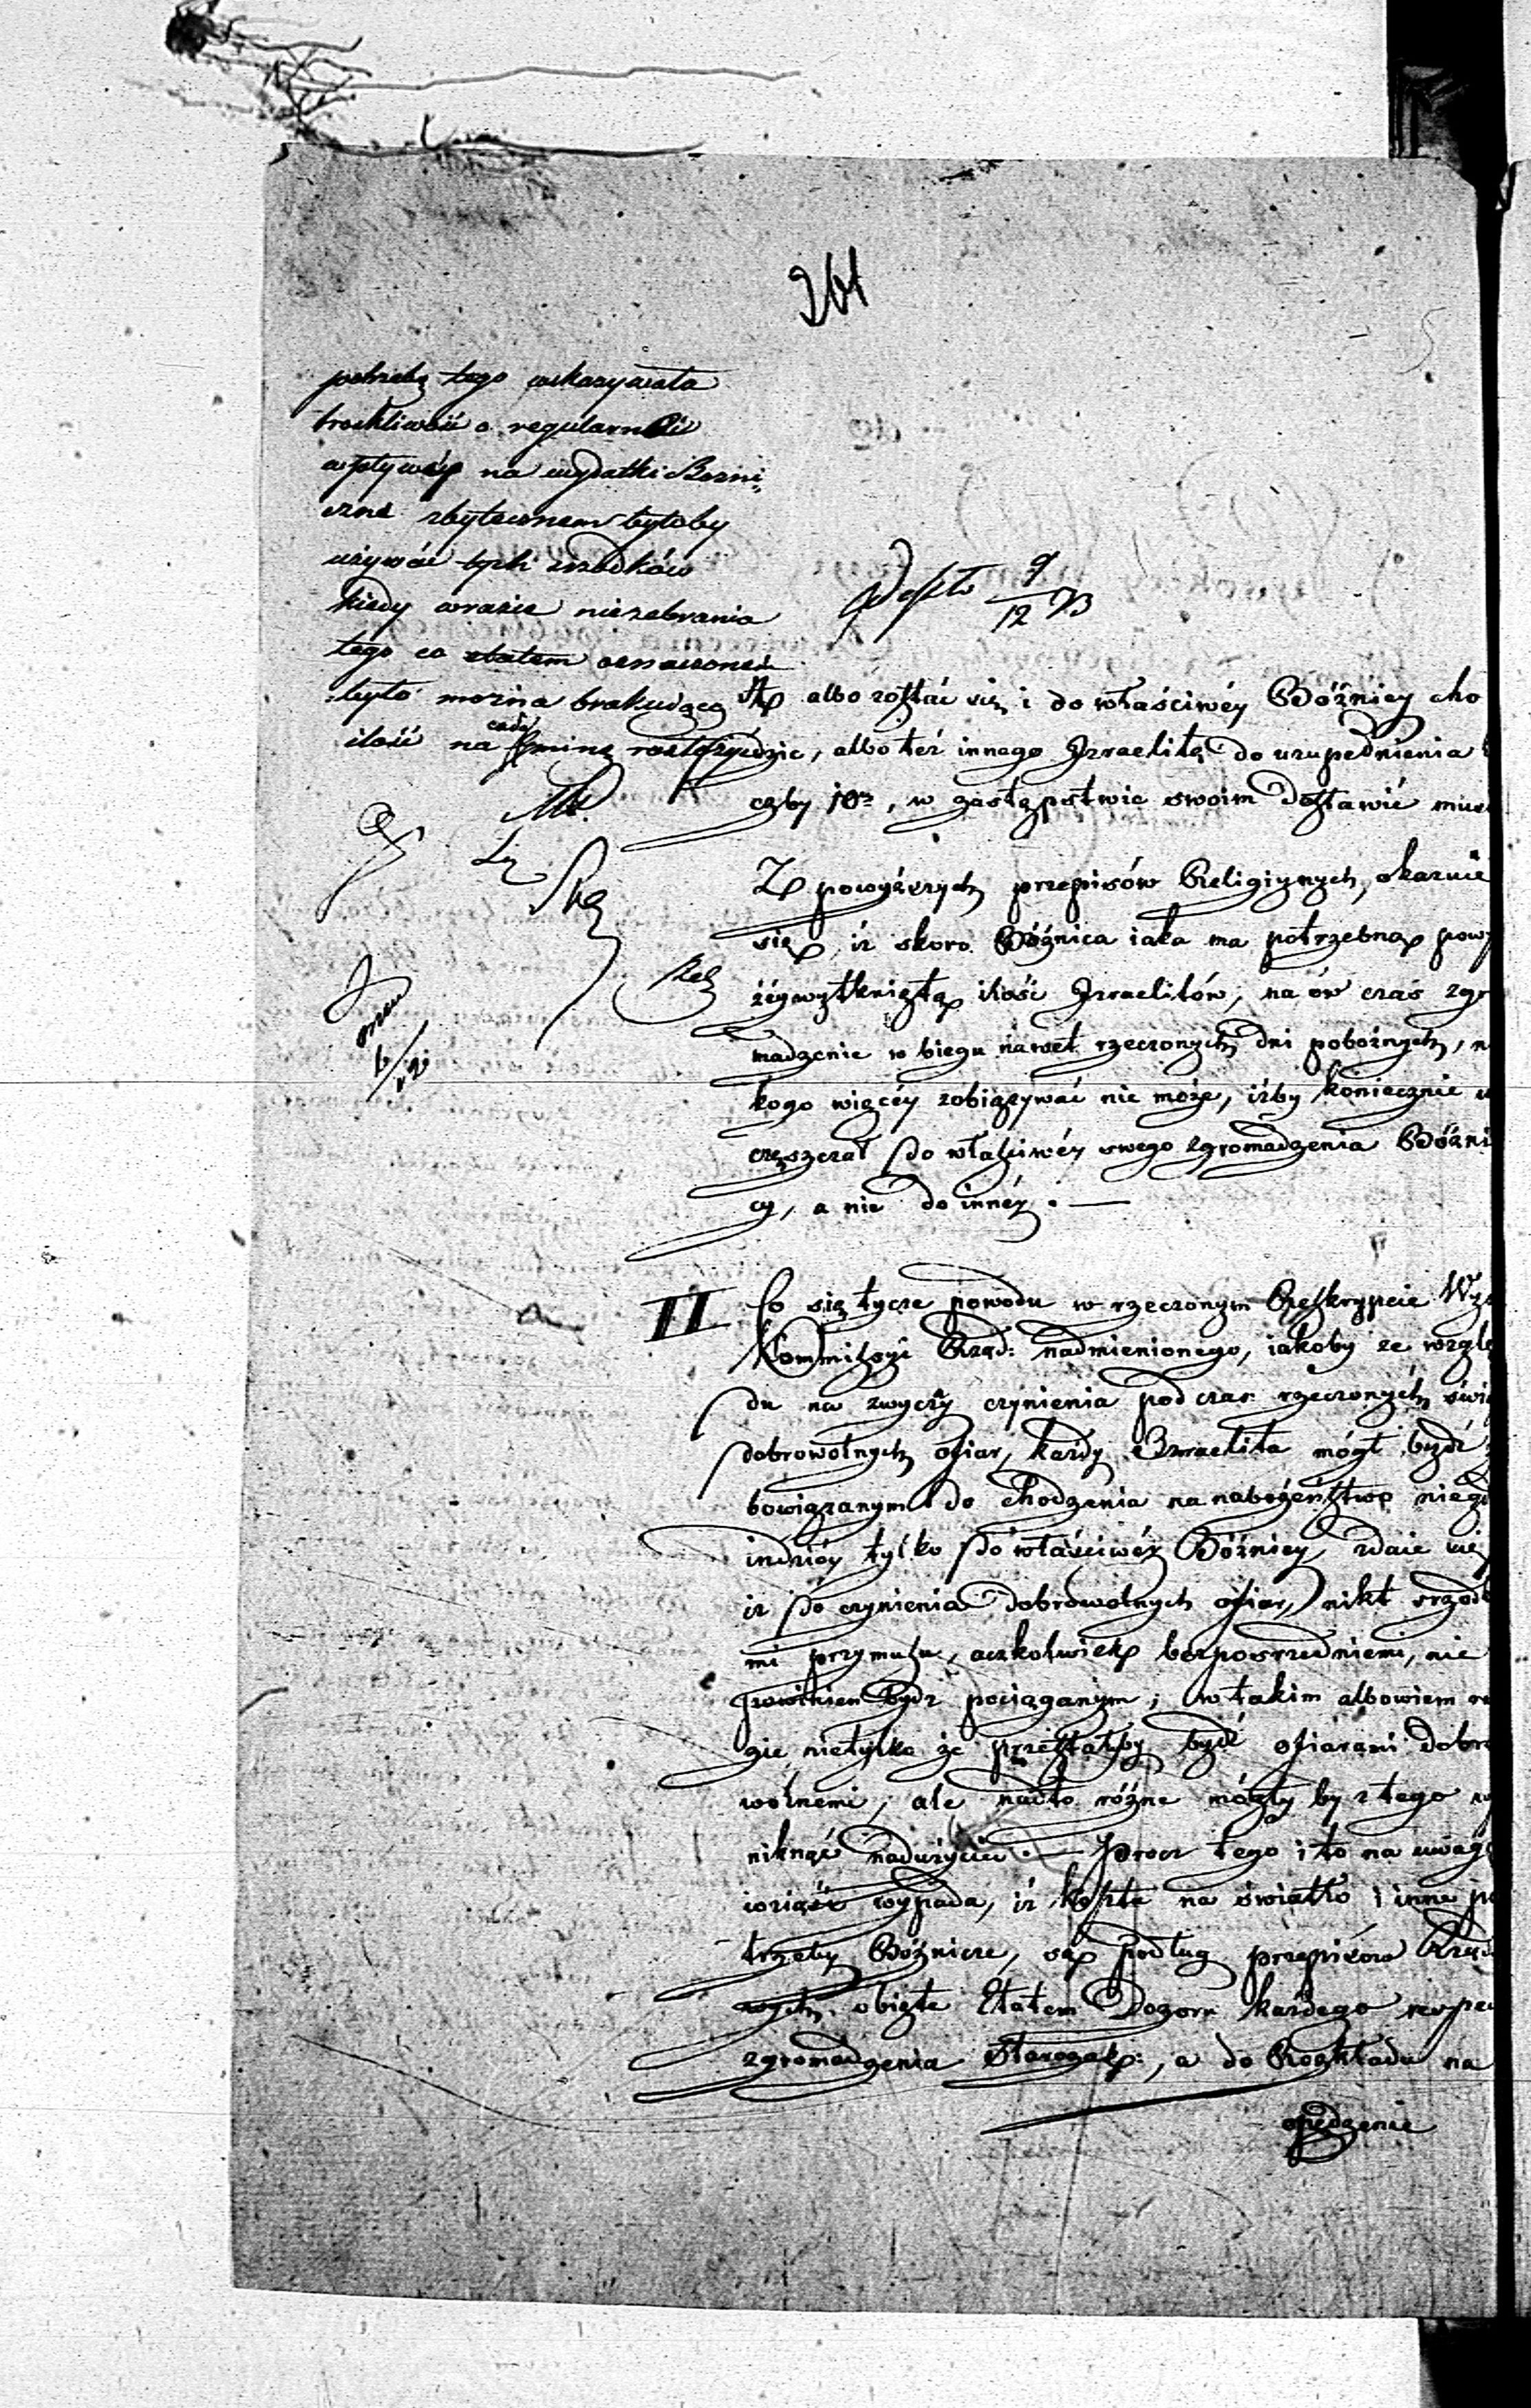 261
potrzebę tego wskazywała
troskliwość o regularność
wpływów na wydatki Bozni-
czne zbytecznem byłoby
używać tych srzodków
kiedy w razie niezebrania
tego co etatem oznaczonem
było można brakuiącą
ilość na całą Gminę
9/12
albo zostać się i do właściwéy Bóźnicy cho
albo też innego Izraelitę do uzupełnienia
czby 10ciu, w zastępstwie swoim dostawić musi
Z powyższych przepisów Religiynych, okazuie
się, iż skoro Bóźnica iaka ma potrzebną powy
żéy wytknięta ilość Izraelitów, na ów czas zgro
madzenie w biegu nawet rzeczonych dni pobożnych, ni
kogo więcéy zobiązywać nie może, iżby koniecznie u
częszczał do właściwéy swego zgromadzenia Bóźni
cy, a nie do innéy. —
II Co się tycze powodu w rzeczonym Reskrypcie Wys
Kommissyi Rząd: nadmienionego, iakoby ze wzglę
du na zwyczay czynienia podczas rzeczonych świą
dobrowolnych ofiar, każdy Izraelita mógł bydź
bowiązanym do chodzenia na nabożeństwo niegd
indziéy tylko do właściwéy Bóźnicy, zdaie się
iż do czynienia dobrowolnych ofiar, nikt srzodk
mi przymusu, aczkolwiek bezposrzedniemi, nie
powinien bydź pociąganym; w takim albowiem ra
zie nietylko że przestałyby bydź ofiarami dobro
wolnemi, ale nadto różne mógły by z tego wy
niknąć nadużycia. — Procz tego i to na uwagę
wziąść wypada, iż koszta na światło i inne po
trzeby Bóźnicze, są podług przepisów Rządo
wych obięte Etatem Dozoru każdego respec
zgromadzenia Starozak:, a do Rozkładu na
opędzenie